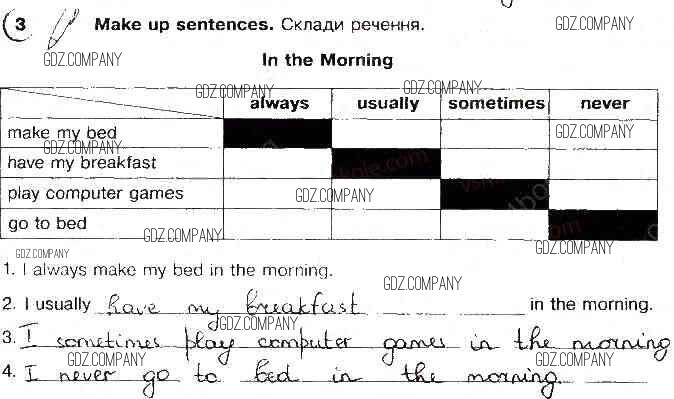 3 Make up sentences. Склади речення.
In the Morning
always usually sometimes never
make my bed
have my breakfast
play computer games
go to bed
1. I always make my bed in the morning.
2. I usually have my breakfast in the morning.
3. I sometimes play computer games in the morning
4. I never go to bed in the morning.
GDZ.COMPANY
GDZ.COMPANY
GDZ.COMPANY
GDZ.COMPANY
GDZ.COMPANY
GDZ.COMPANY
GDZ.COMPANY
GDZ.COMPANY
GDZ.COMPANY
GDZ.COMPANY
GDZ.COMPANY
GDZ.COMPANY
GDZ.COMPANY
GDZ.COMPANY